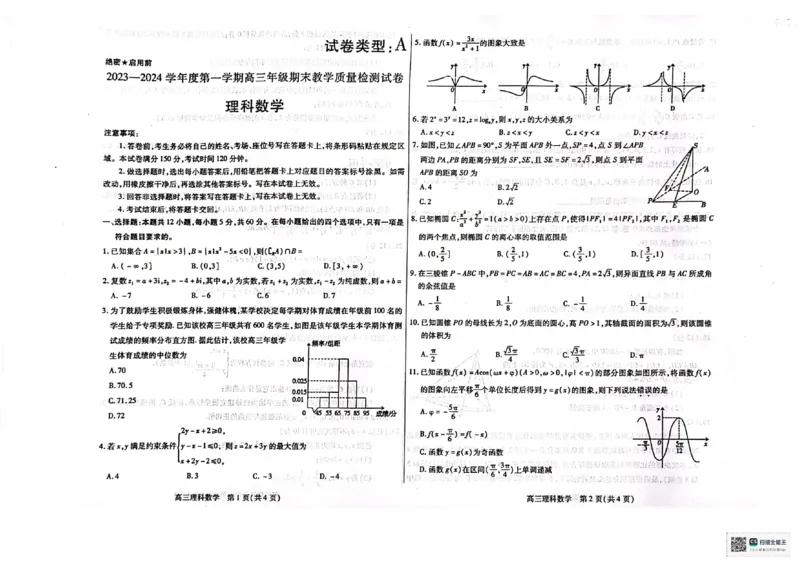 试卷类型:A
绝密★启用前
2023—2024 学年度第一学期高三年级期末教学质量检测试卷
理科数学
注意事项:
1. 答卷前,考生务必将自己的姓名、考场、座位号写在答题卡上,将条形码粘贴在规定区
域。本试卷满分 150 分,考试时间 120 分钟。
2. 做选择题时,选出每小题答案后,用铅笔把答题卡上对应题目的答案标号涂黑。如需
改动,用橡皮擦干净后,再选涂其他答案标号。写在本试卷上无效。
3. 回答非选择题时,将答案写在答题卡上,写在本试卷上无效。
4. 考试结束后,将答题卡交回。
一、选择题:本题共 12 小题,每小题 5 分,共 60 分。在每小题给出的四个选项中,只有一项是
符合题目要求的。
1. 已知集合 A={x|x>3},B={x|x²-5x<0},则(∁ᵣA)∩B=
A. (-∞,3] B. (0,3] C. (3,5) D. [3,+∞)
2. 复数 z₁=a+3i,z₂=-4+bi,其中 a,b 为实数,若 z₁+z₂ 为实数,z₁-z₂ 为纯虚数,则 a+b=
A. -7 B. -6 C. 6 D. 7
3. 为了鼓励学生积极锻炼身体,强健体魄,某学校决定每学期对体育成绩在年级前 100 名的
学生给予专项奖励. 已知该校高三年级共有 600 名学生,如图是该年级学生本学期体育测
试成绩的频率分布直方图. 据此估计,该校高三年级学
生体育成绩的中位数为
A. 70
B. 70.5
C. 71.25
D. 72
频率/组距
0.04
0.025
0.015
0.01
0 45 55 65 75 85 95 成绩/分
4. 若 x,y 满足约束条件{2y-x+2≥0, y-x-1≤0, x+2y-2≤0,则 z=2x+3y 的最大值为
A. 4 B. 3 C. -3 D. -4
高三理科数学 第 1 页(共 4 页)
5. 函数 f(x)=3x/(x²+1)的图象大致是
A B C D
6. 若 2ˣ=3ʸ=12,z=logₓy,则 x,y,z 的大小关系为
A. x<y<z B. z<x<y C. z<y<x D. y<x<z
7. 如图,已知∠APB=90°,S 为平面 APB 外一点,SP=4,点 S 到∠APB
两边 PA,PB 的距离分别为 SF,SE,且 SE=SF=2√5,则点 S 到平面
APB 的距离 SO 为
A. 4 B. 2√2
C. 2 D. √2
S
A
F
O
P E B
8. 已知椭圆 C:x²/a²+y²/b²=1(a>b>0)上存在点 P,使得|PF₁|=4|PF₂|,其中 F₁,F₂ 是椭圆 C
的两个焦点,则椭圆 C 的离心率的取值范围是
A. (0,2/5] B. (2/5,1) C. (3/5,1) D. [3/5,1)
9. 在三棱锥 P-ABC 中,PB=PC=AB=AC=BC=4,PA=2√3,则异面直线 PB 与 AC 所成角
的余弦值是
A. -1/8 B. 1/8 C. -1/4 D. 1/4
10. 已知圆锥 PO 的母线长为 2,O 为底面的圆心,高 PO>1,其轴截面的面积为√3,则该圆锥
的体积为
A. π/2 B. √3π/4 C. √3π/3 D. π
11. 已知函数 f(x)=Acos(ωx+φ)(A>0,ω>0,|φ|<π)的部分图象如图所示,将函数 f(x)
的图象向左平移π/6个单位长度后得到 y=g(x)的图象,则下列说法错误的是
A. φ=-5π/6
B. f(x-π/6)=f(-x)
C. 函数 y=g(x)为奇函数
D. 函数 g(x)在区间(π/6,3π/4)上单调递减
高三理科数学 第 2 页(共 4 页)
扫描全能王